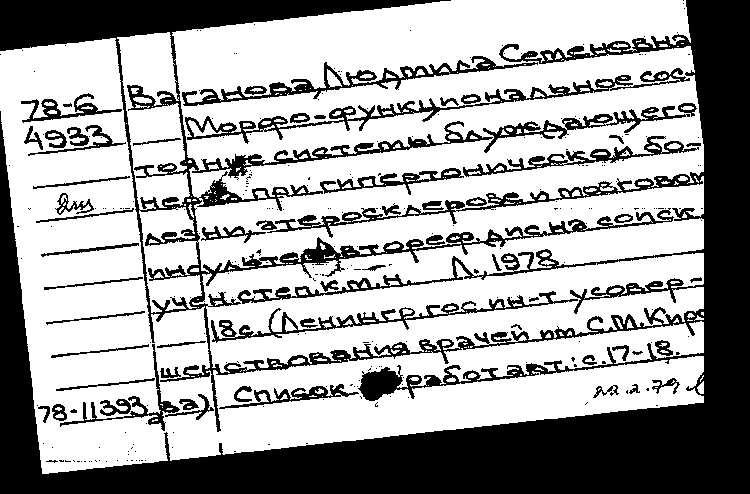 78-6 Ваганова, Людмила Семеновна
4933 Морфо-функциональное сос-
тояние системы блуждающего
нерва при гипертонической бо-
лезни, атеросклерозе и мозговом
инсульте. Автореф. дис. на соиск.
учен. степ. к.м.н. Л., 1978.
18с. (Ленингр. гос. ин-т усовер-
шенствования врачей им. С.М. Киро
ва). Список работ авт.: с. 17-18.
78-11393
22.2.79